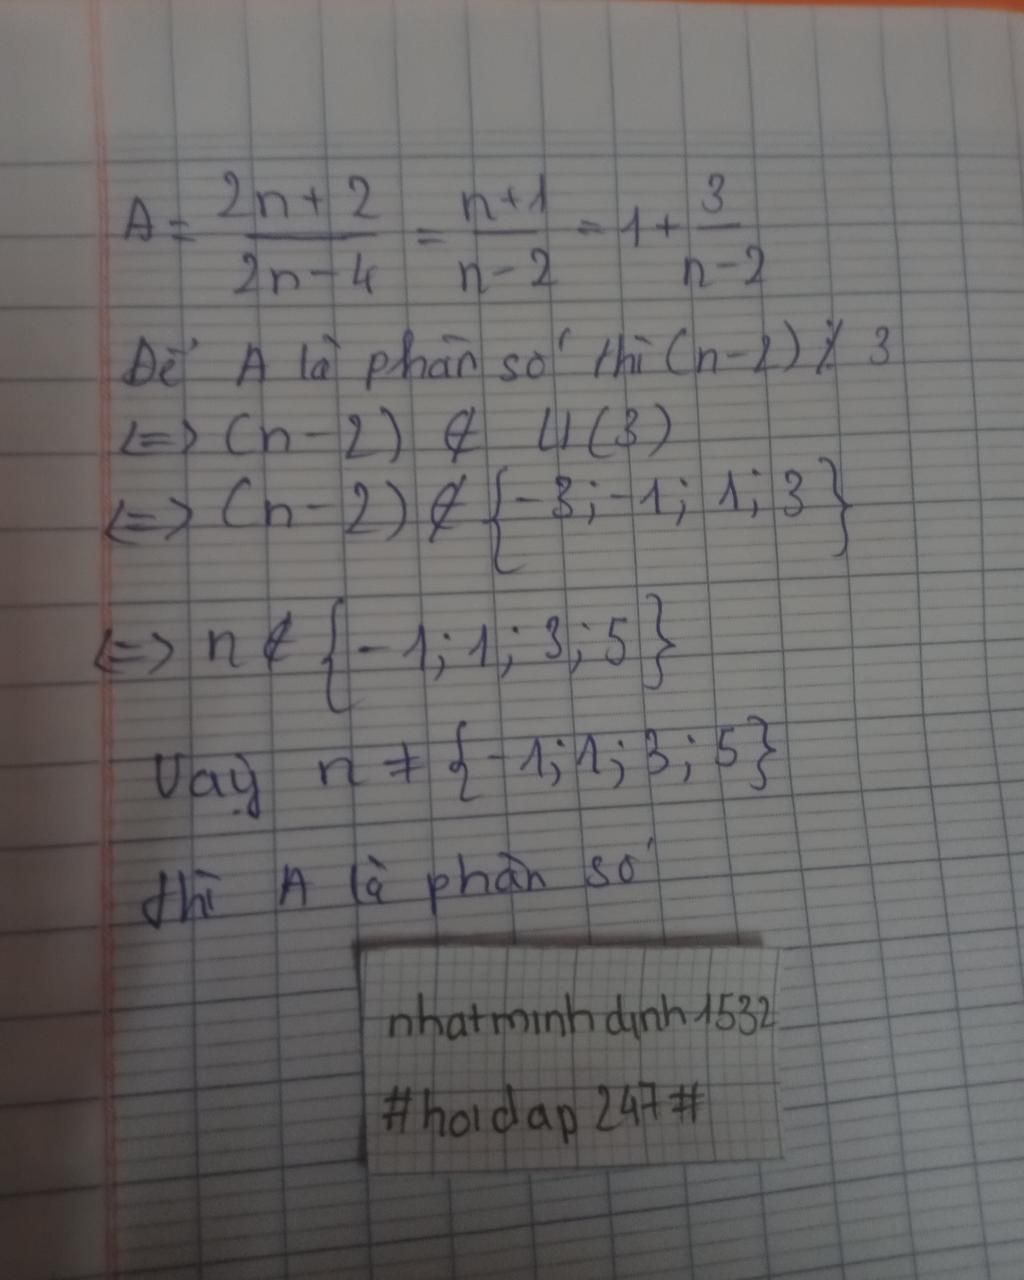 A = 2n+2/2n-4 = n+1/n-2 = 1 + 3/n-2
Để A là phân số thì (n-2) ⋮̸ 3
<=> (n-2) ∉ Ư(3)
<=> (n-2) ∉ {-3; -1; 1; 3}
<=> n ∉ {-1; 1; 3; 5}
Vậy n ≠ {-1; 1; 3; 5}
thì A là phân số
nhatminhdinh1532
#hoidap247#